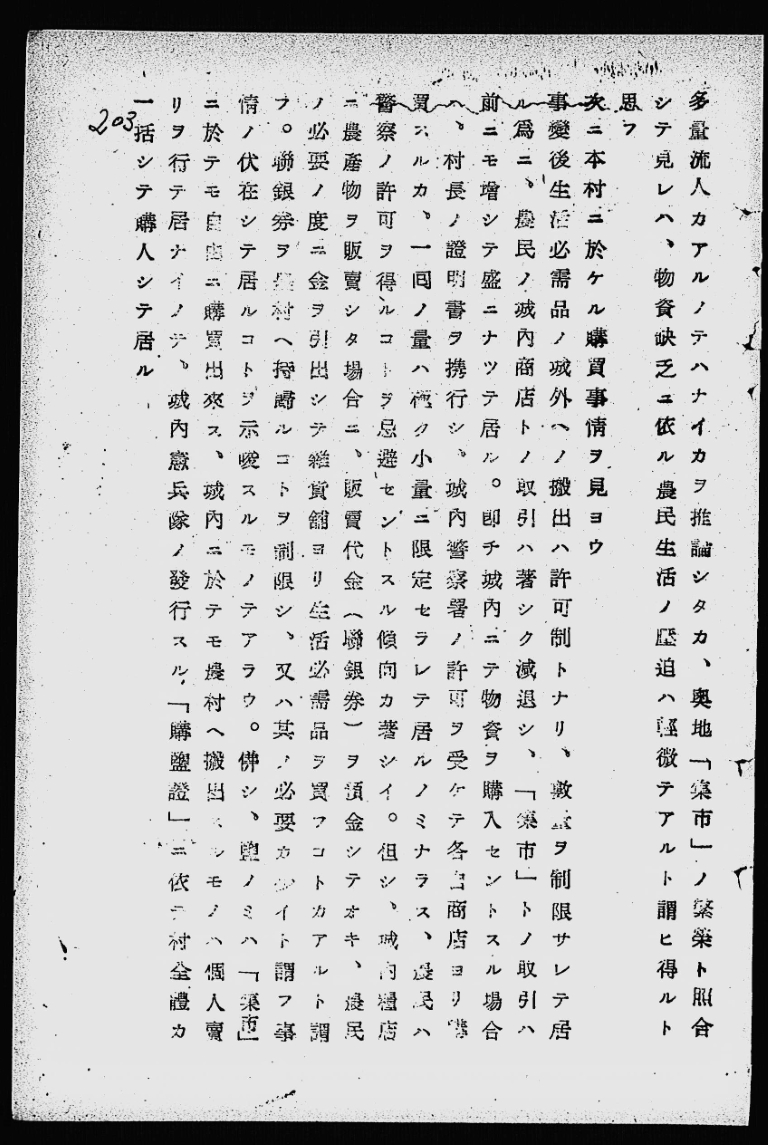 多量流人カアルノテハナイカヲ推論シタカ、奥地「集市」ノ繁榮ト照合
シテ見レハ、物資缺乏ニ依ル農民生活ノ壓迫ハ輕微テアルト謂ヒ得ルト
思フ
次ニ本村ニ於ケル購買事情ヲ見ヨウ
事變後生活必需品ノ城外ヘノ搬出ハ許可制トナリ、數量ヲ制限サレテ居
ル爲ニ、農民ノ城內商店トノ取引ハ著シク減退シ、「集市」トノ取引ハ
前ニモ增シテ盛ニナツテ居ル。卽チ城內ニテ物資ヲ購入セントスル場合
ハ、村長ノ證明書ヲ携行シ、城內警察署ノ許可ヲ受ケテ各自商店ヨリ購
買スルカ、一回ノ量ハ極ク小量ニ限定セラレテ居ルノミナラス、農民ハ
警察ノ許可ヲ得ルコトヲ忌避セントスル傾向カ著シイ。但シ、城內糧店
ニ農產物ヲ販賣シタ場合ニ、販賣代金(聯銀券)ヲ預金シテオキ、農民
ノ必要ノ度ニ金ヲ引出シテ雜貨舖ヨリ生活必需品ヲ買フコトカアルト謂
フ。聯銀券ヲ農村ヘ持歸ルコトヲ制限シ、又ハ其ノ必要カ少イト謂フ事
情ノ伏在シテ居ルコトヲ示唆スルモノテアラウ。佛シ、鹽ノミハ「集市」
ニ於テモ自由ニ購買出來ス、城內ニ於テモ農村ヘ搬出スルモノハ個人賣
リヲ行テ居ナイノテ、城內憲兵隊ノ發行スル「購鹽證」ニ依テ村全體カ
一括シテ購人シテ居ル
203